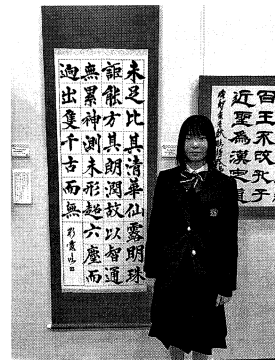 未足比其清華仙露明珠
詎能方其朗潤故以智通
無累神測未形超六塵而
迥出隻千古而無
百王不改孔子
近聖為漢定道